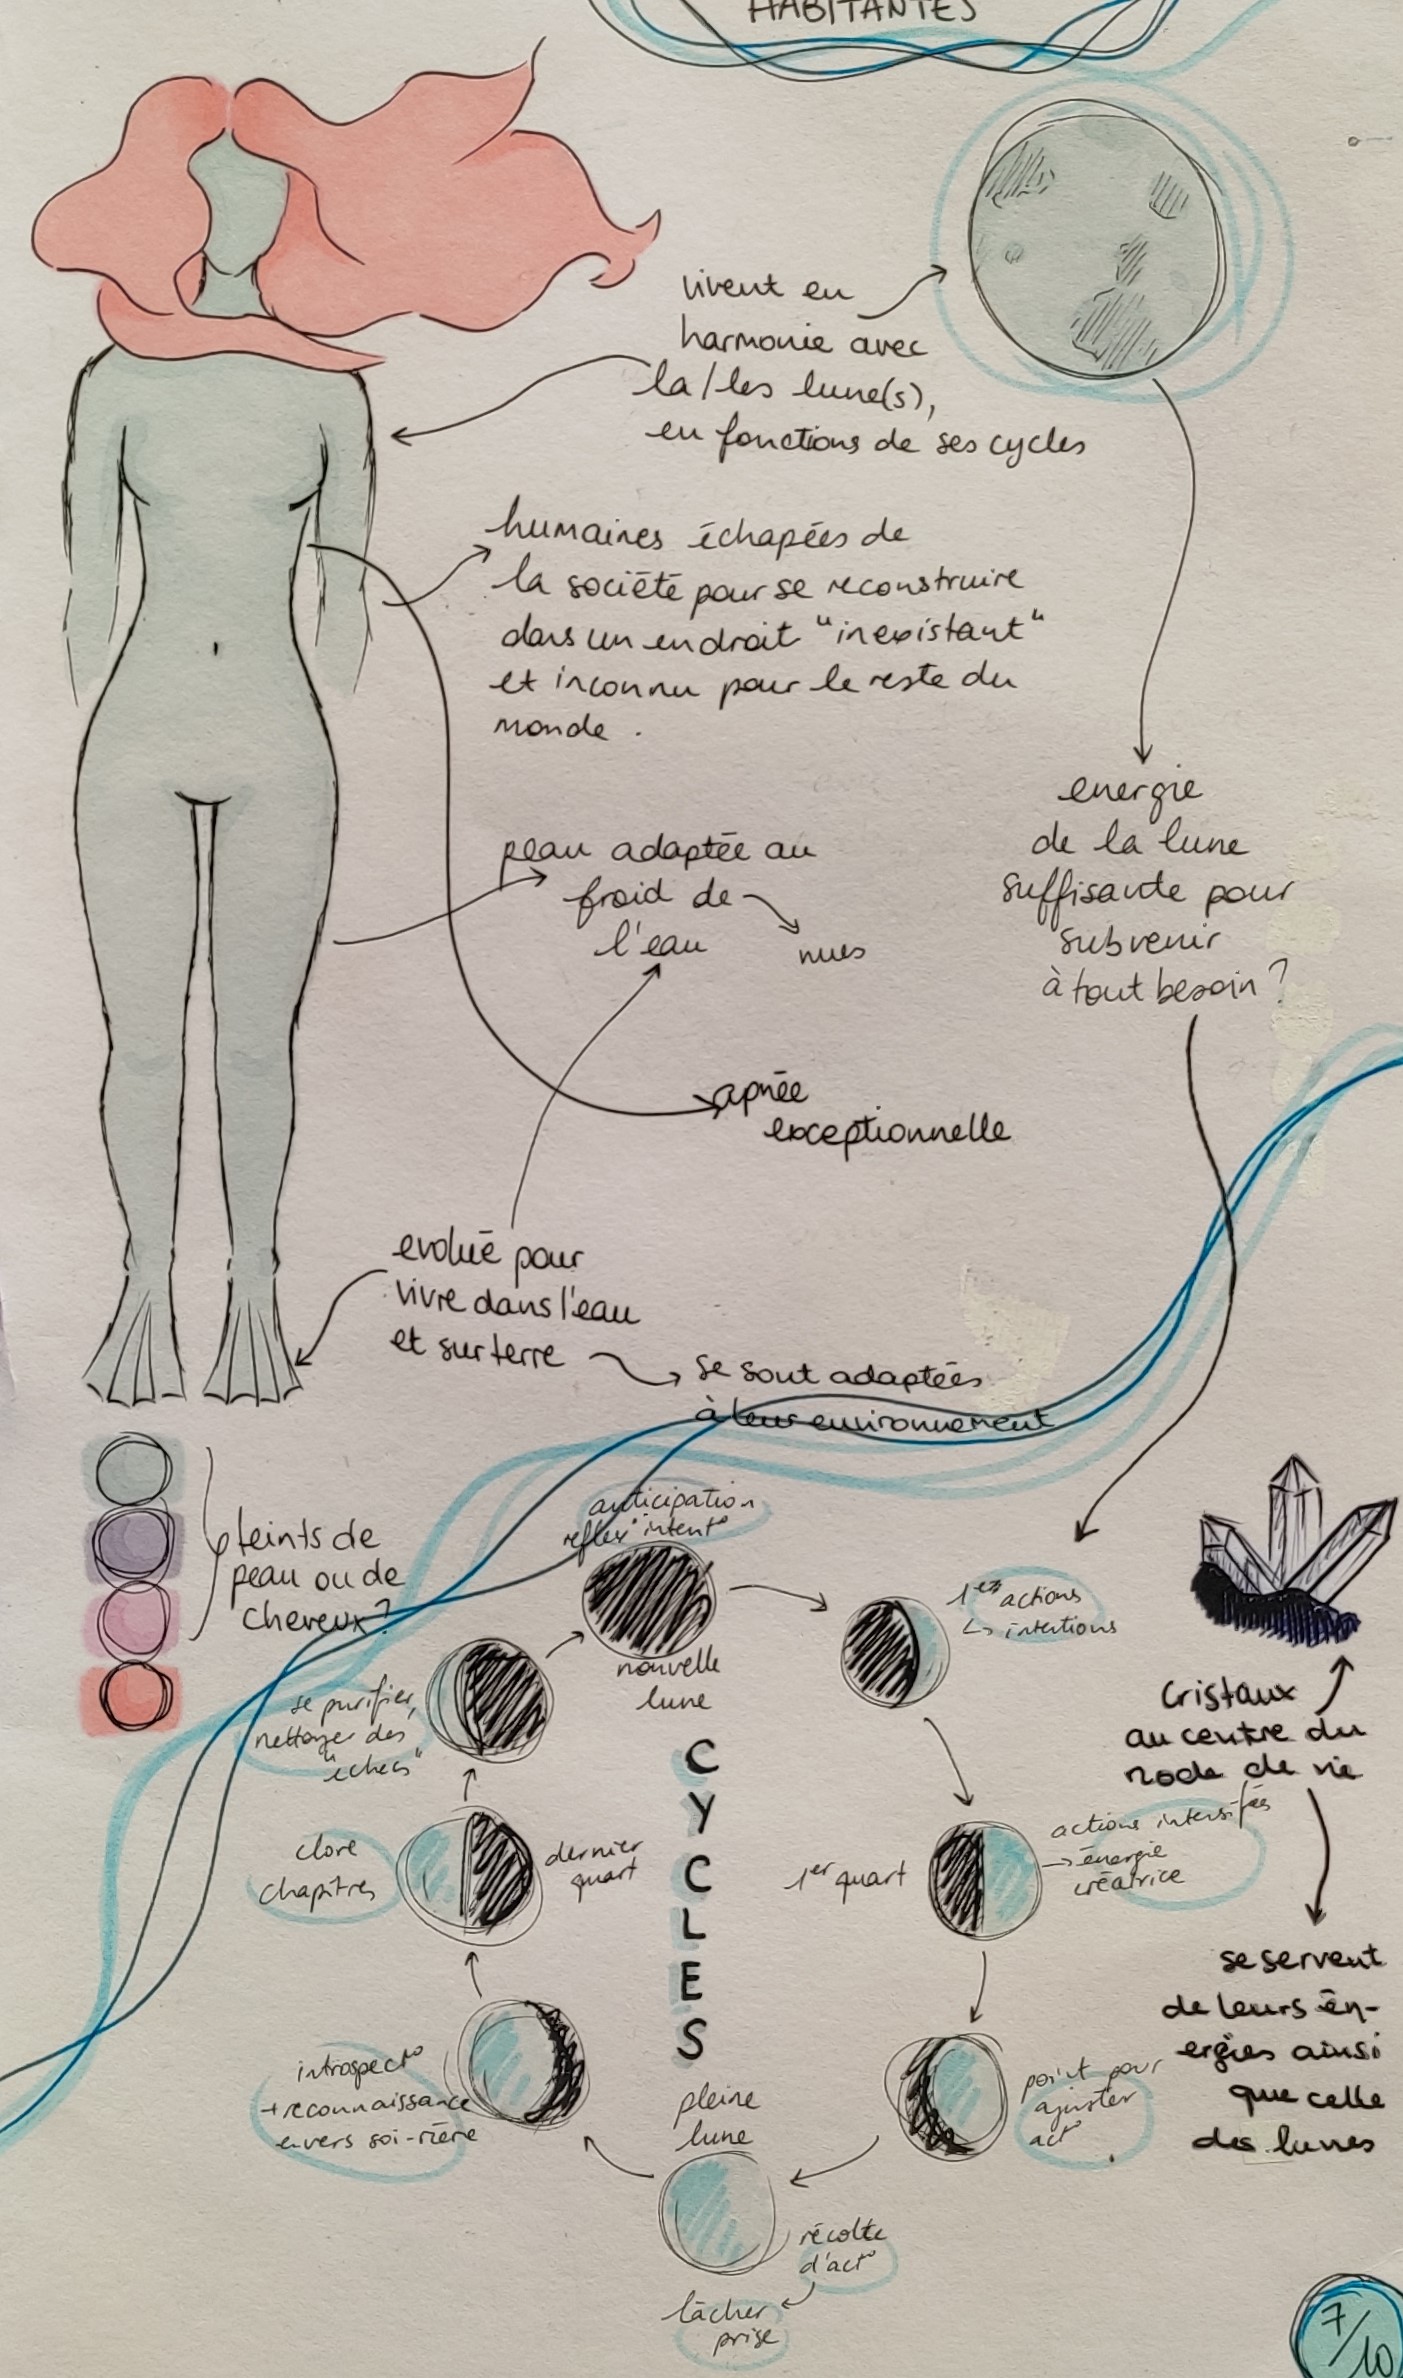 HABITANTES
vivent en
harmonie avec
la/les lune(s),
en fonctions de ses cycles
humaines échapées de
la société pour se reconstruire
dans un endroit "inexistant"
et inconnu pour le reste du
monde.
energie
de la lune
suffisante pour
subvenir
à tout besoin?
peau adaptée au
froid de
l'eau
nues
apnée
exceptionnelle
evolué pour
vivre dans l'eau
et sur terre
se sont adaptées
à leur environnement
teints de
peau ou de
cheveux?
anticipation
reflex° intent°
nouvelle
lune
1ères actions
↳ intentions
1er quart
actions intensifiées
→ énergie
créatrice
point pour
ajuster
act°
pleine
lune
récolte
d'act°
lâcher
prise
introspect°
+reconnaissance
envers soi-même
dernier
quart
clore
chapitres
se purifier,
nettoyer des
"échecs"
CYCLES
cristaux
au centre du
mode de vie
se servent
de leurs én-
ergies ainsi
que celle
des lunes
7/10